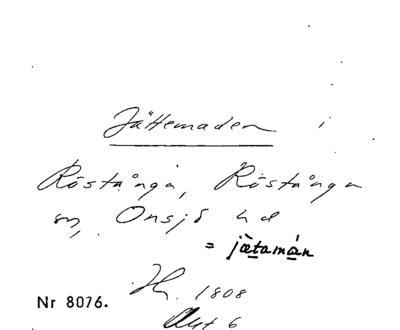 Jättemaden i
Röstånga, Röstånga
sn, Onsjö hd
= jätamán
Nr 8076.
1808
Akt 6